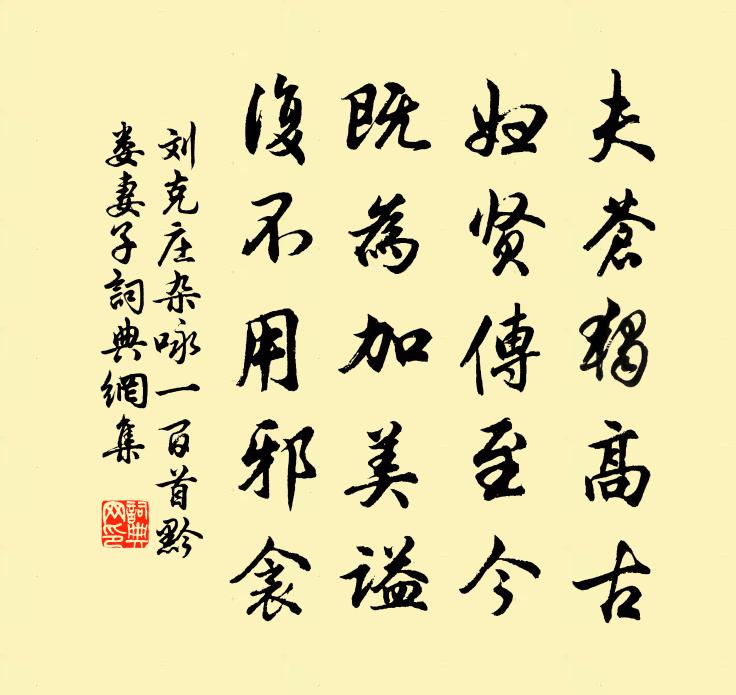 夫蒼獨高古
妇贤傳至今
既為加美谥
復不用邪衾
刘克庄杂咏一百首黔
娄妻子詞典網集
詞典
网印